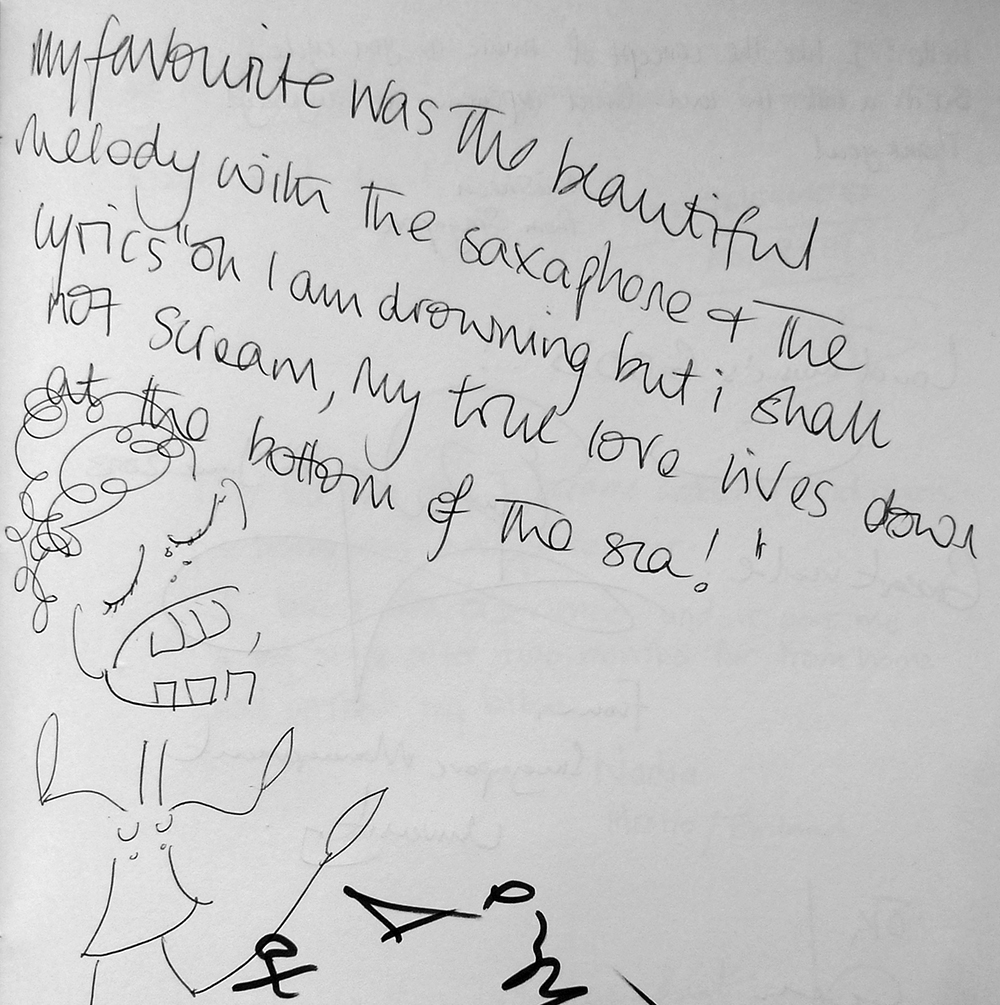 My favourite was the beautiful
melody with the saxaphone & the
lyrics "oh I am drowning but i shall
not scream, my true love lives down
at the bottom of the sea! "